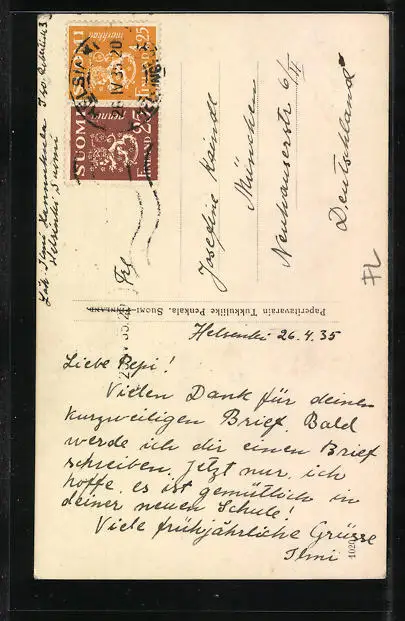 Helsinki 26.4.35
Liebe Pepi!
Vielen Dank für deinen
kurzweiligen Brief. Bald
werde ich dir einen Brief
schreiben, jetzt nur, ich
hoffe, es ist gemütlich in
deiner neuen Schule!
Viele frühjährliche Grüsse
Ilmi
Frl
Josefine Kaindl
München
Neuhauserstr 6/II
Deutschland
FL
Paperitavarain Tukkuliike Penkala. Suomi-Finland
Helsinki Suomi
SUOMI
markkaa
1,25
FINLAND
SUOMI
penniä
25
FINLAND